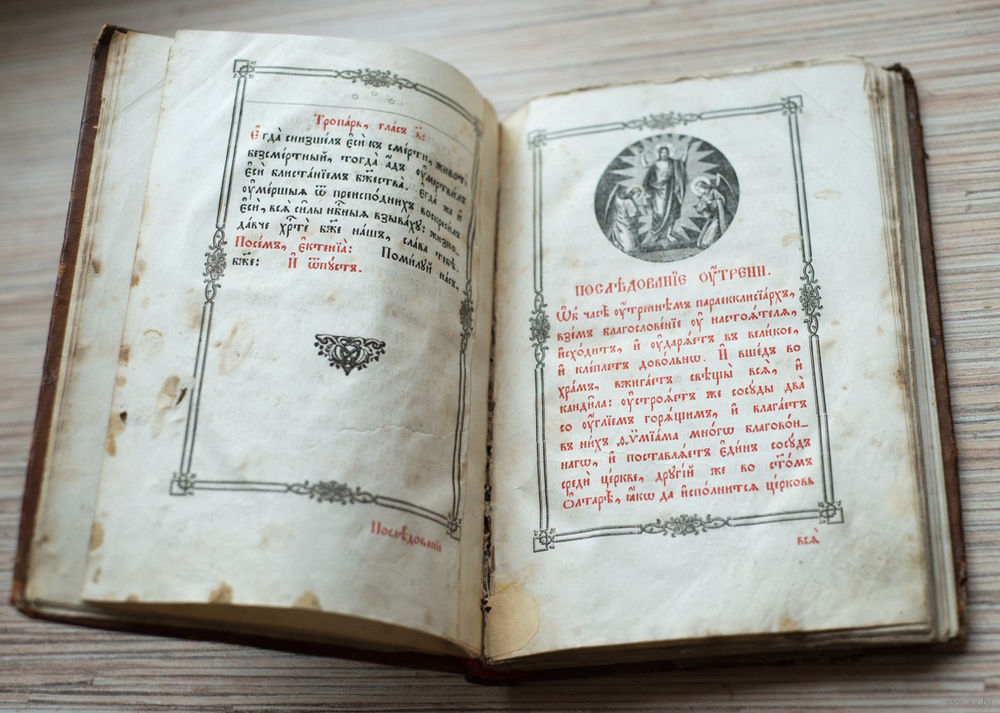 Тропа́рь, гла́съ в҃:
Є҆гда̀ снизше́лъ є҆сѝ къ сме́рти, животѐ
безсме́ртный, тогда̀ а҆́дъ ᲂу҆мертви́лъ
є҆сѝ блиста́нїемъ бж҃ества̀. Є҆гда́ же и҆
ᲂу҆ме́ршыѧ ѿ преиспо́дныхъ воскреси́лъ
є҆сѝ, всѧ̑ си̑лы нбⷭ҇ныѧ взыва́хꙋ: жизно-
да́вче хрⷭ҇тѐ бж҃е на́шъ, сла́ва тебѣ̀.
Посе́мъ, є҆ктенїа̀: Поми́лꙋй на́съ,
бж҃е: И҆ ѿпꙋ́стъ.
Послѣ́дованїе
ПОСЛѢ́ДОВАНЇЕ ᲂУ҆́ТРЕНИ.
Ѡ҆б̾ часѣ̀ ᲂу҆́треннемъ параекклисїа́рхъ,
взе́мъ благослове́нїе ᲂу҆ настоѧ́телѧ,
и҆схо́дитъ, и҆ ᲂу҆дарѧ́етъ въ вели́кое,
и҆ кле́плетъ дово́льнѡ. И҆ вше́дъ во
хра́мъ, вжига́етъ свѣщы̀ всѧ̑, и҆
канди̑ла: ᲂу҆строѧ́етъ же сосꙋ́ды два̀
со ᲂу҆́глїемъ горѧ́щимъ, и҆ влага́етъ
въ ни́хъ ѳ҆ѷмїа́ма мно́гѡ благово́н-
нагѡ, и҆ поставлѧ́етъ є҆ди́нъ сосꙋ́дъ
средѝ це́ркве, дрꙋгі́й же во ст҃о́мъ
ѻ҆лтарѣ̀, ꙗ҆́кѡ да и҆спо́лнитсѧ це́рковь
всѧ̀